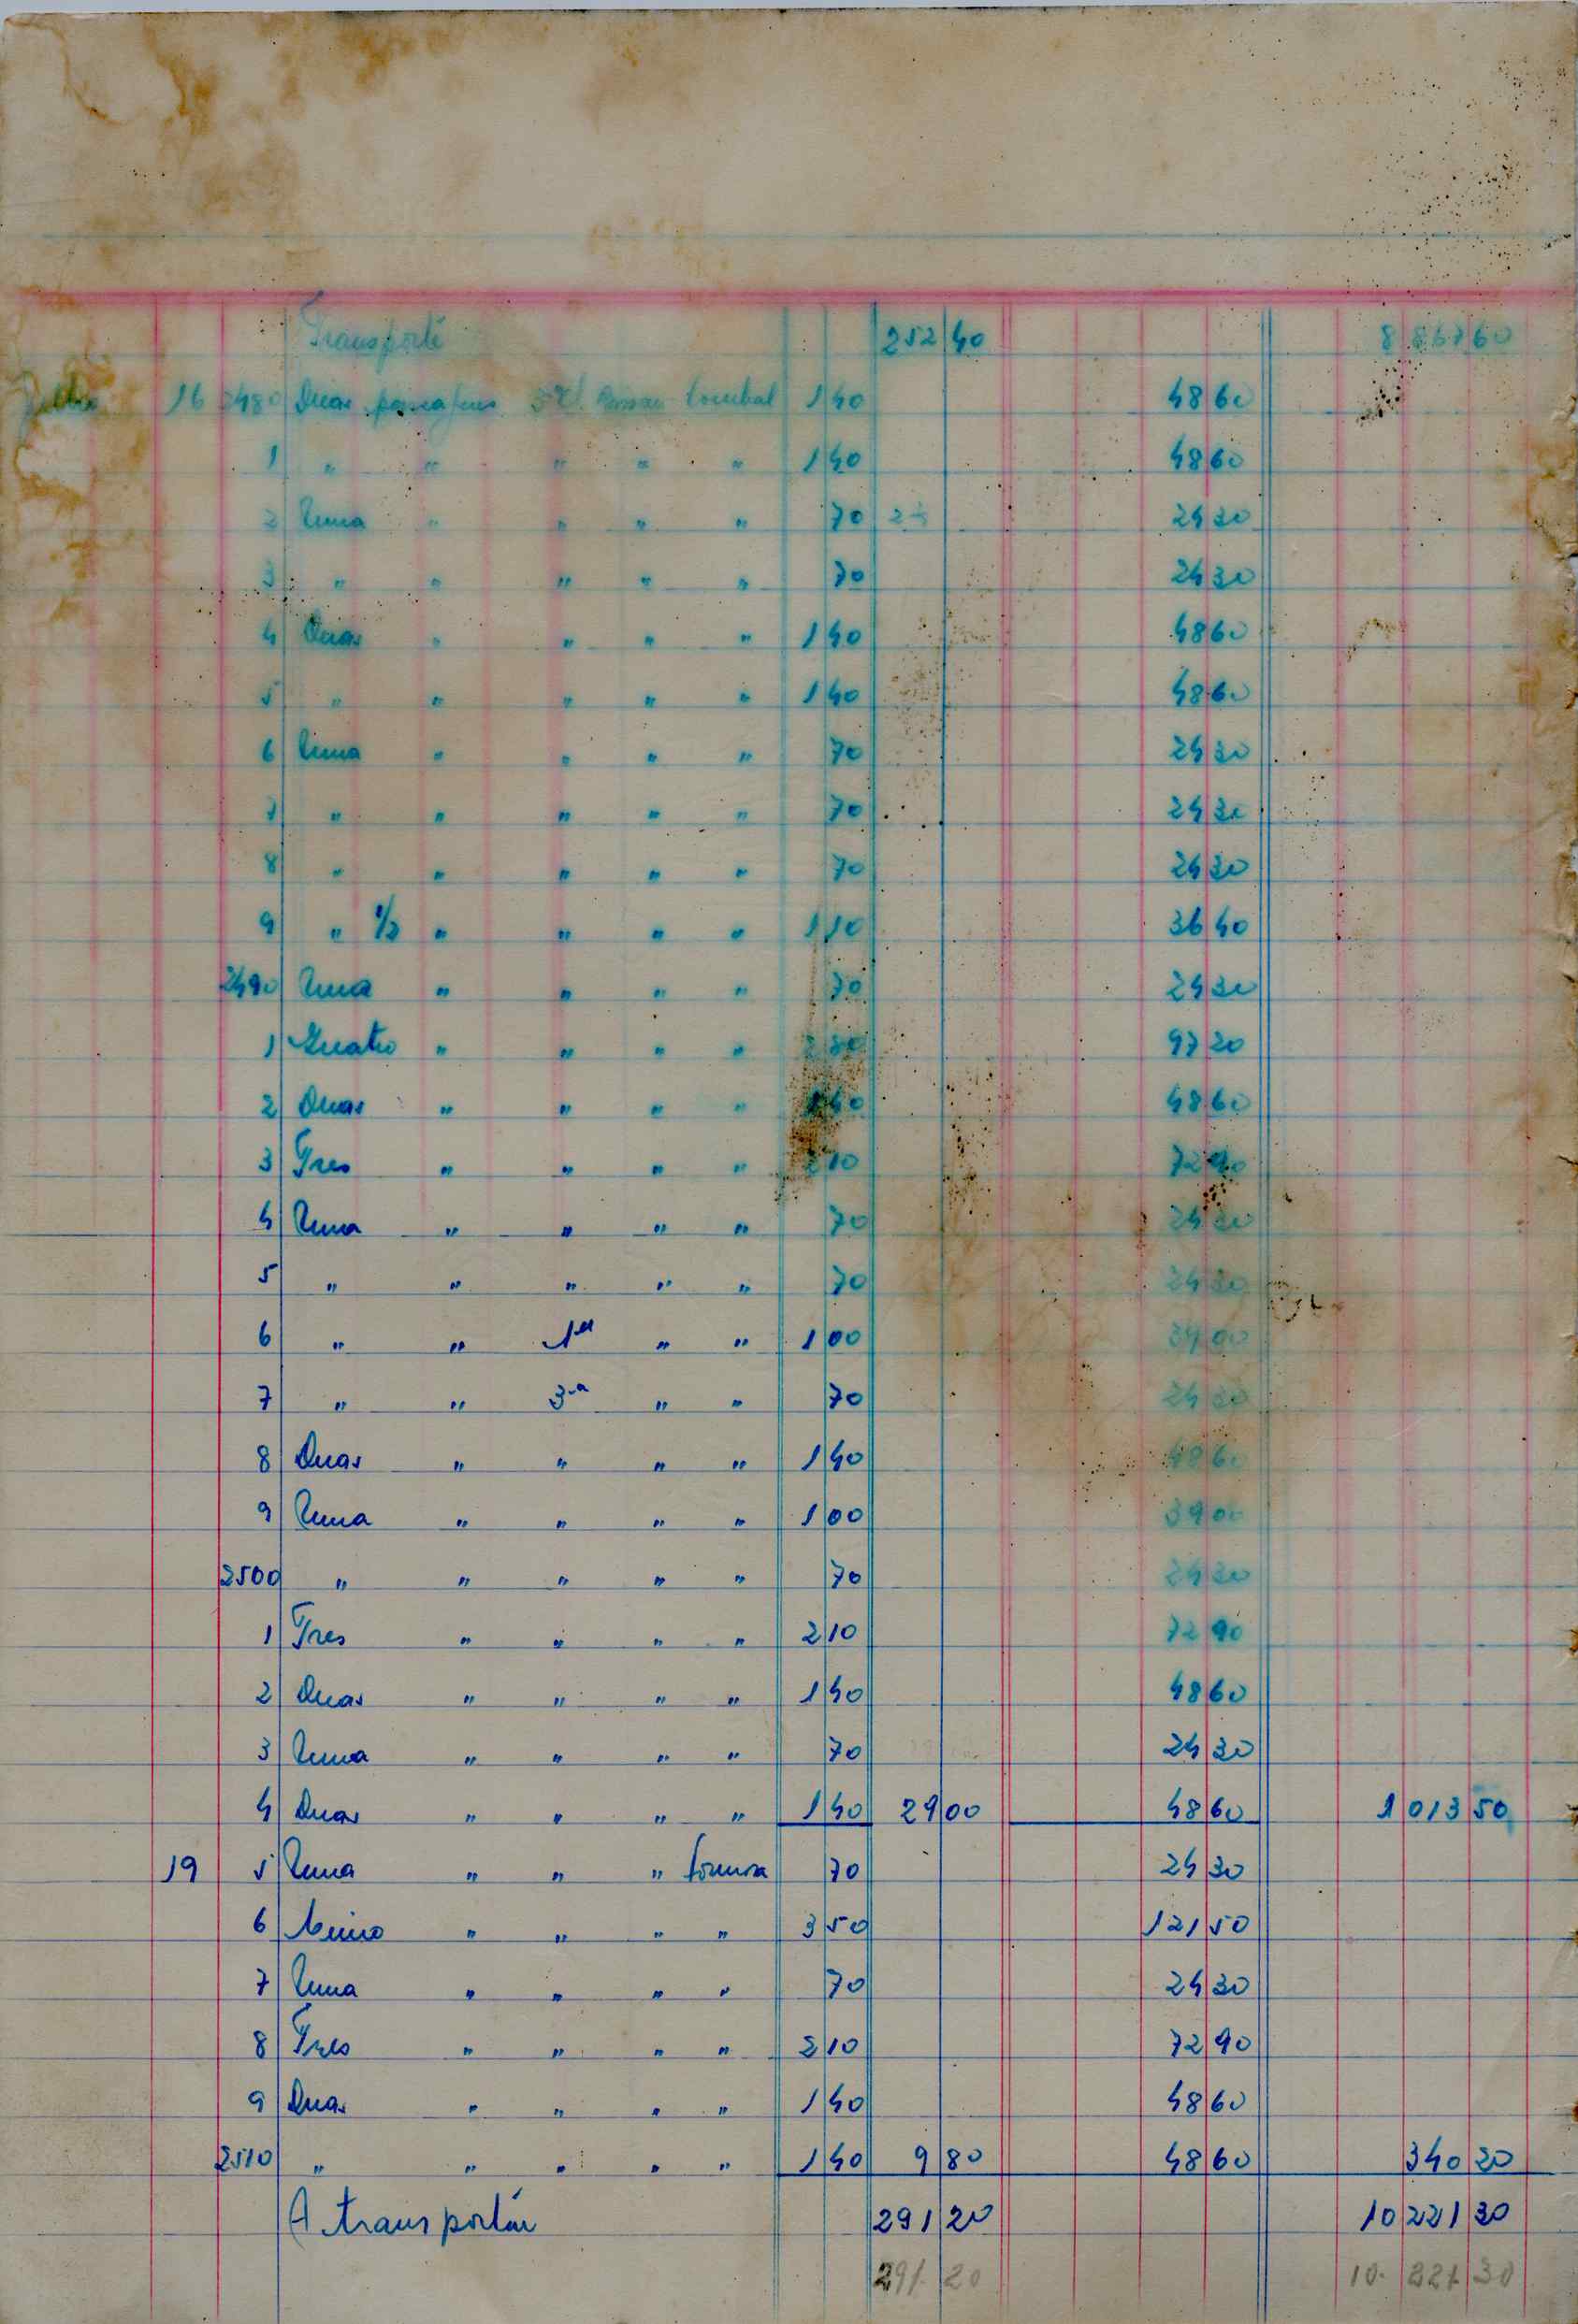 Transporte 252 40 8 867 60
Julho 16 2480 Duas passagens 3ª cl. Bissau Combal 1 40 48 60
1 " " " " " 1 40 48 60
2 Uma " " " " 70 24 30
3 " " " " " 70 24 30
4 Duas " " " " 1 40 48 60
5 " " " " " 1 40 48 60
6 Uma " " " " 70 24 30
7 " " " " " 70 24 30
8 " " " " " 70 24 30
9 " 1/2 " " " " 1 10 36 40
2490 Uma " " " " 70 24 30
1 Quatro " " " " 2 80 97 20
2 Duas " " " " 1 40 48 60
3 Tres " " " " 2 10 72 90
4 Uma " " " " 70 24 30
5 " " " " " 70 24 30
6 " " 1ª " " 1 00 39 00
7 " " 3ª " " 70 24 30
8 Duas " " " " 1 40 48 60
9 Uma " " " " 1 00 39 00
2500 " " " " " 70 24 30
1 Tres " " " " 2 10 72 90
2 Duas " " " " 1 40 48 60
3 Uma " " " " 70 24 30
4 Duas " " " " 1 40 29 00 48 60 1 013 50
19 5 Uma " " " 70 24 30
6 Cinco " " " " 3 50 121 50
7 Uma " " " " 70 24 30
8 Tres " " " " 2 10 72 90
9 Duas " " " " 1 40 48 60
2510 " " " " " 1 40 9 80 48 60 340 20
A transportar 291 20 10 221 30
291. 20 10. 221 30